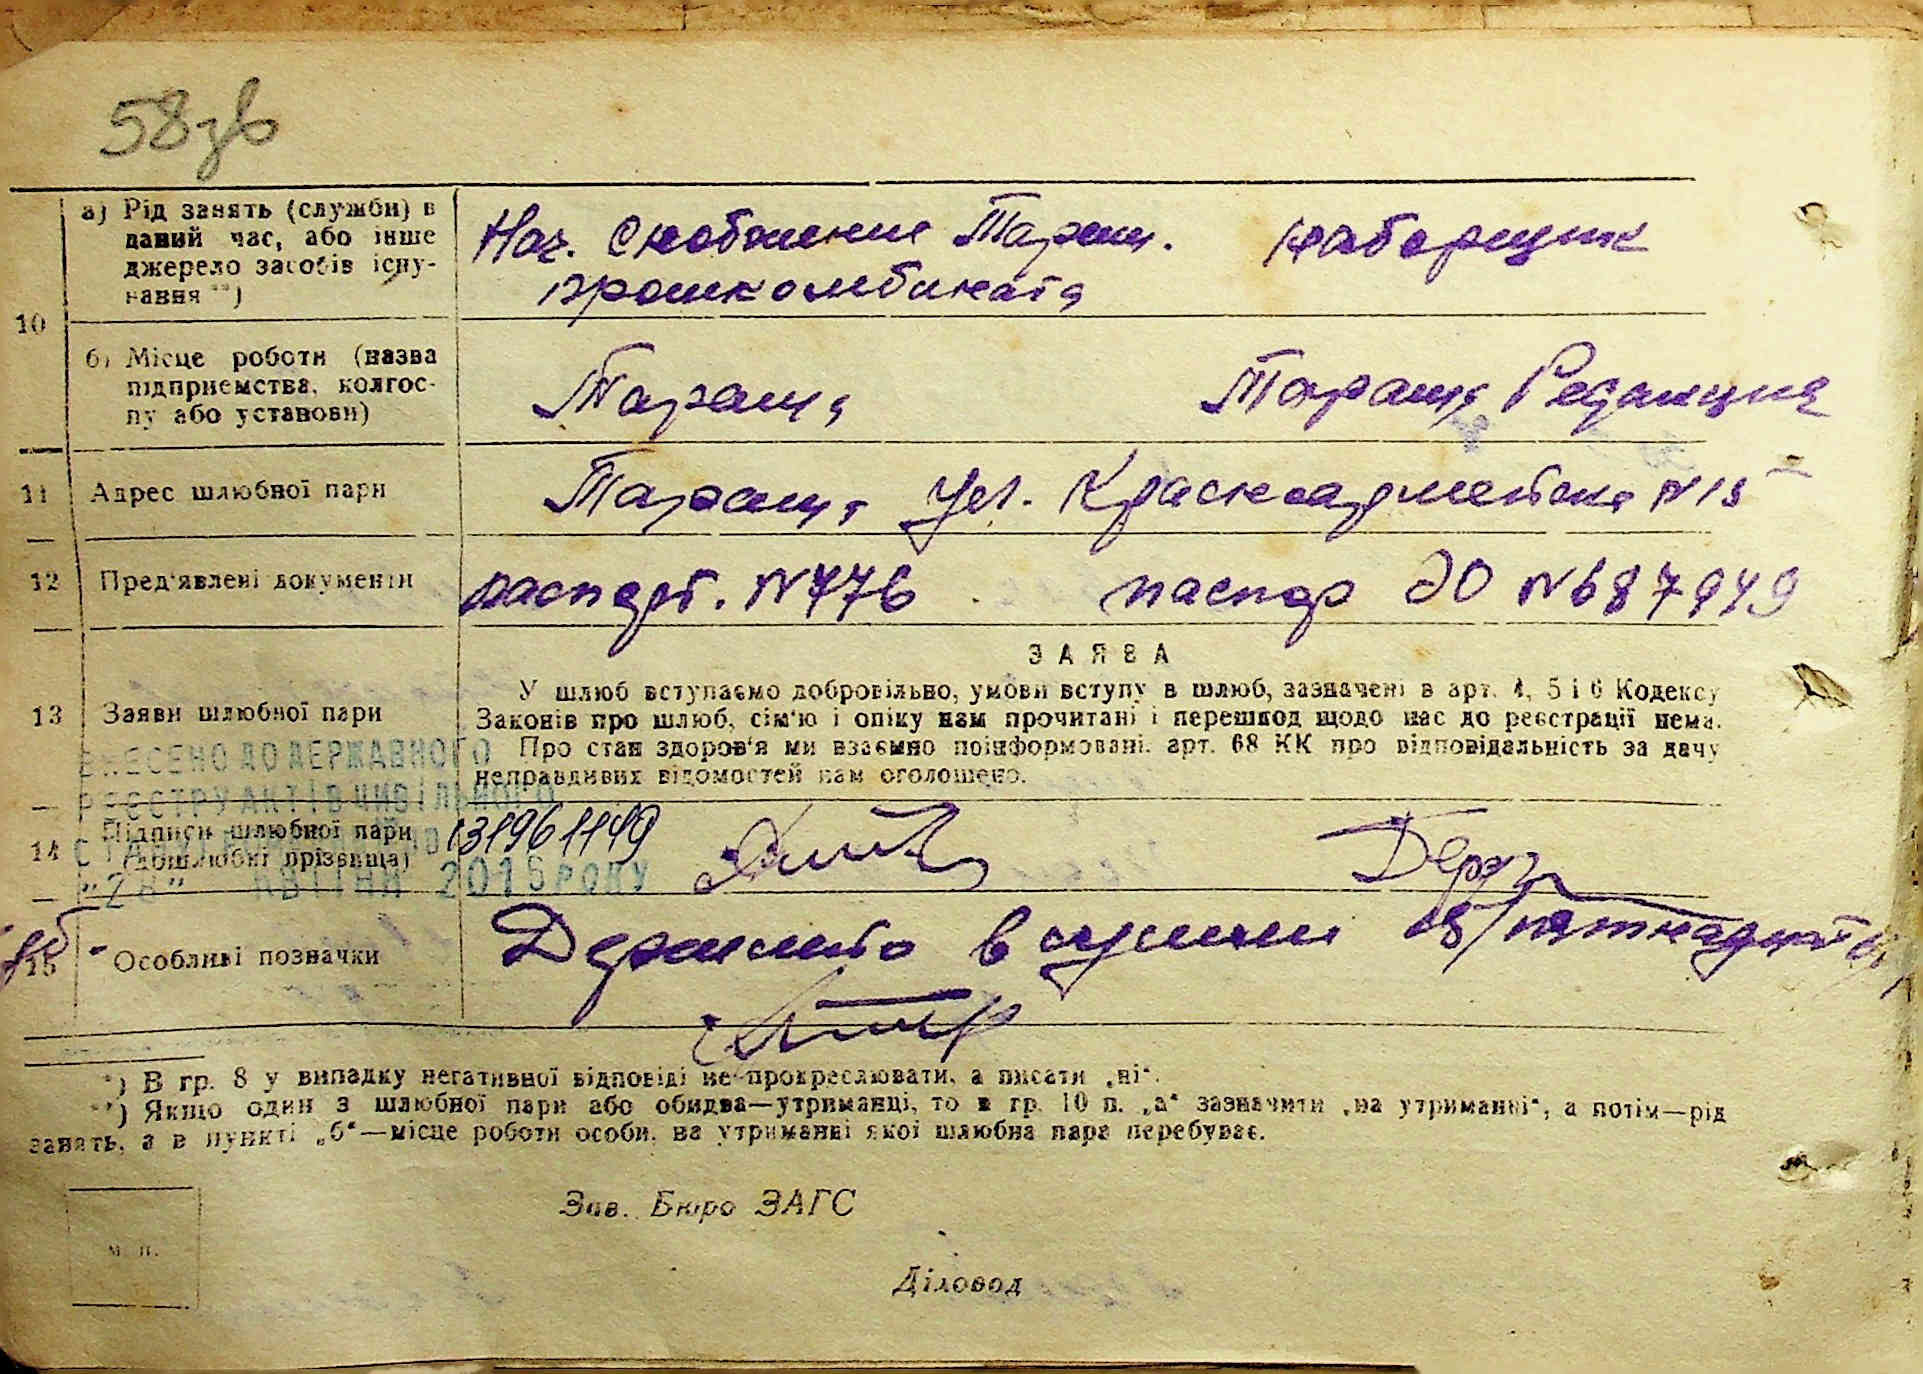 58зв
10
а) Рід занять (служби) в
даний час, або інше
джерело засобів існу-
вання **)
Нач. Снабжения Таращ.
промкомбината
наборщик
б) Місце роботи (назва
підприємства, колгос-
пу або установи)
Тараща
Тараща Редакция
11
Адрес шлюбної пари
Тараща ул. Красноармейска №15
12
Пред'явлені документи
паспорт. №776
паспор ЭО №687949
13
Заяви шлюбної пари
ЗАЯВА
У шлюб вступаємо добровільно, умови вступу в шлюб, зазначені в арт. 4, 5 і 6 Кодексу
Законів про шлюб, сім'ю і опіку нам прочитані і перешкод щодо нас до реєстрації нема.
Про стан здоров'я ми взаємно поінформовані. арт. 68 КК про відповідальність за дачу
неправдивих відомостей нам оголошено.
ВНЕСЕНО ДО ДЕРЖАВНОГО
РЕЄСТРУ АКТІВ ЦИВІЛЬНОГО
КВІТНЯ 2015 РОКУ
14
Підписи шлюбної пари
(дошлюбні прізвища)
15
Особливі позначки
в сумми 15/пятнадцать
*) В гр. 8 у випадку негативної відповіді не прокреслювати, а писати „ні“.
**) Якщо один з шлюбної пари або обидва—утриманці, то в гр. 10 п. „а“ зазначити „на утриманні“, а потім—рід
занять, а в пункті „б“—місце роботи особи, на утриманні якої шлюбна пара перебуває.
Зав. Бюро ЗАГС
м. п.
Діловод